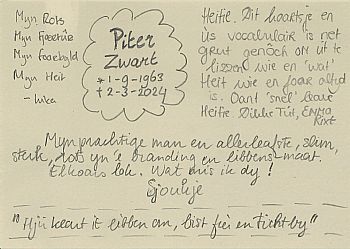 Myn Rots
Myn Fjoertûr
Myn foarbyld
Myn Heit
- Inka
Piter
Zwart
* 1-9-1963
+ 2-3-2024
Heitie. Dit kaartsje en
ús vocabulair is net
grut genôch om út te
lizzen wie en 'wat'
Heit wie en foar altyd
is. Oant 'snel' leave
Heitie. Dikke Tút,
Myn prachtige man en allerleafste, slim,
sterk, rots yn 'e branding en libbens-maat.
Elkoars lok. Wat mis ik dy!
Sjoukje
"Hjir leart it libben om, bist fier en ticht by"